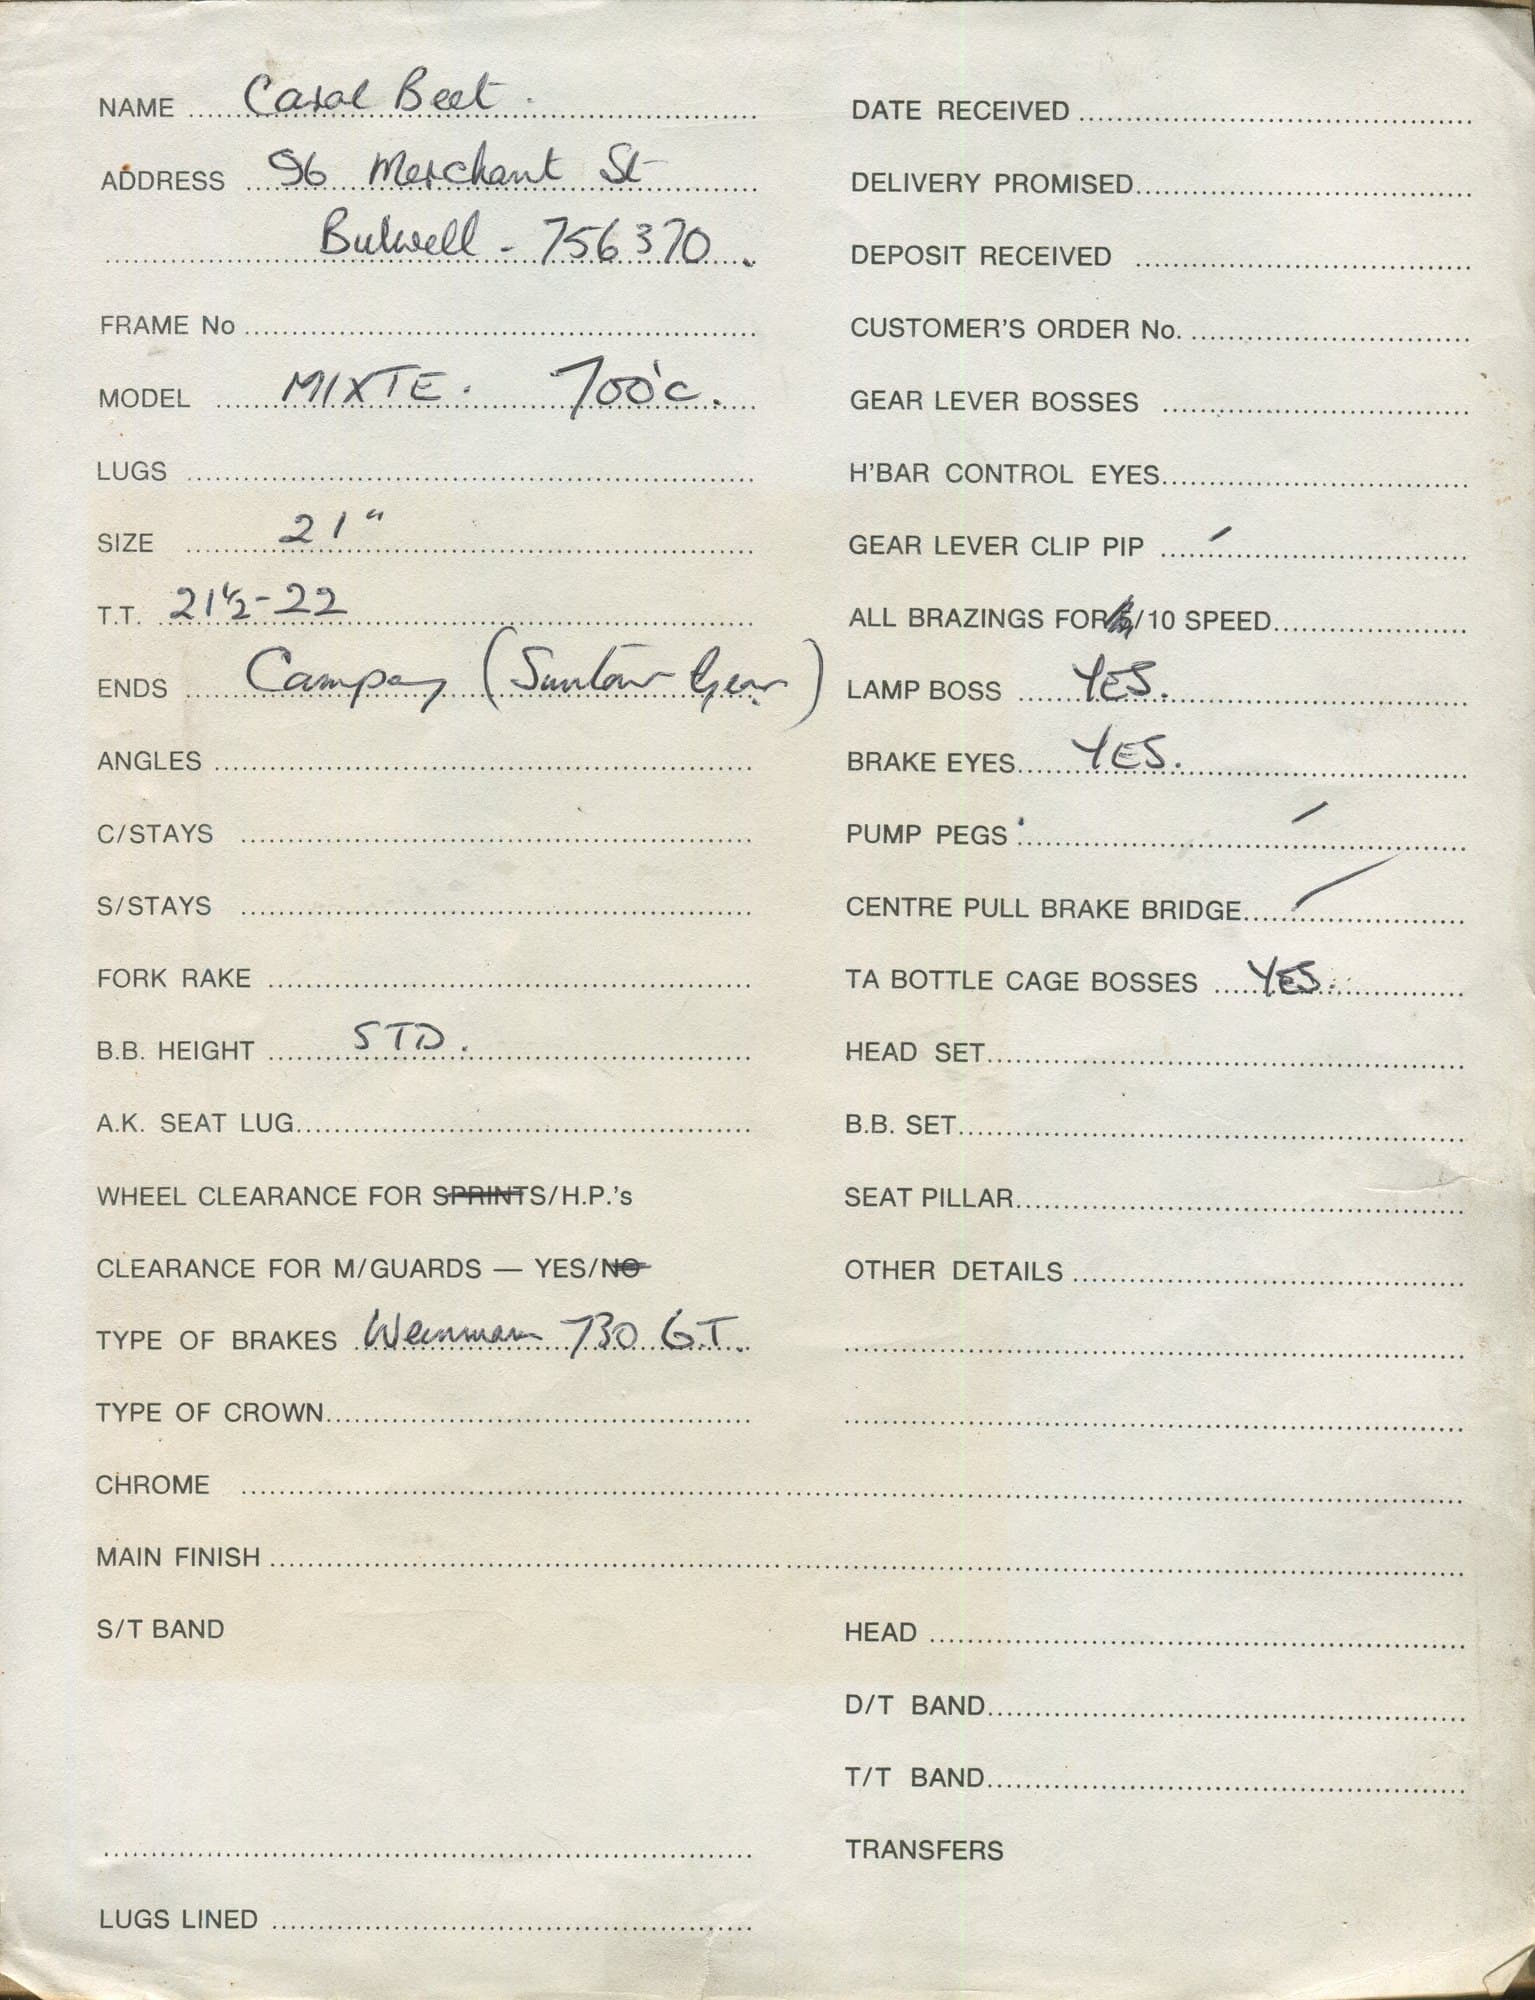 NAME Carol Beet.
ADDRESS 96 Merchant St
Bulwell - 756370.
FRAME No
MODEL MIXTE. 700'c.
LUGS
SIZE 21"
T.T. 21½-22
ENDS Campag (Suntour Gear)
ANGLES
C/STAYS
S/STAYS
FORK RAKE
B.B. HEIGHT STD.
A.K. SEAT LUG
WHEEL CLEARANCE FOR SPRINTS/H.P.'s
CLEARANCE FOR M/GUARDS — YES/NO
TYPE OF BRAKES Weinmann 730 G.T.
TYPE OF CROWN
CHROME
MAIN FINISH
S/T BAND
LUGS LINED
DATE RECEIVED
DELIVERY PROMISED
DEPOSIT RECEIVED
CUSTOMER'S ORDER No.
GEAR LEVER BOSSES
H'BAR CONTROL EYES
GEAR LEVER CLIP PIP
ALL BRAZINGS FOR /10 SPEED
LAMP BOSS YES.
BRAKE EYES YES.
PUMP PEGS
CENTRE PULL BRAKE BRIDGE
TA BOTTLE CAGE BOSSES YES.
HEAD SET
B.B. SET
SEAT PILLAR
OTHER DETAILS
HEAD
D/T BAND
T/T BAND
TRANSFERS